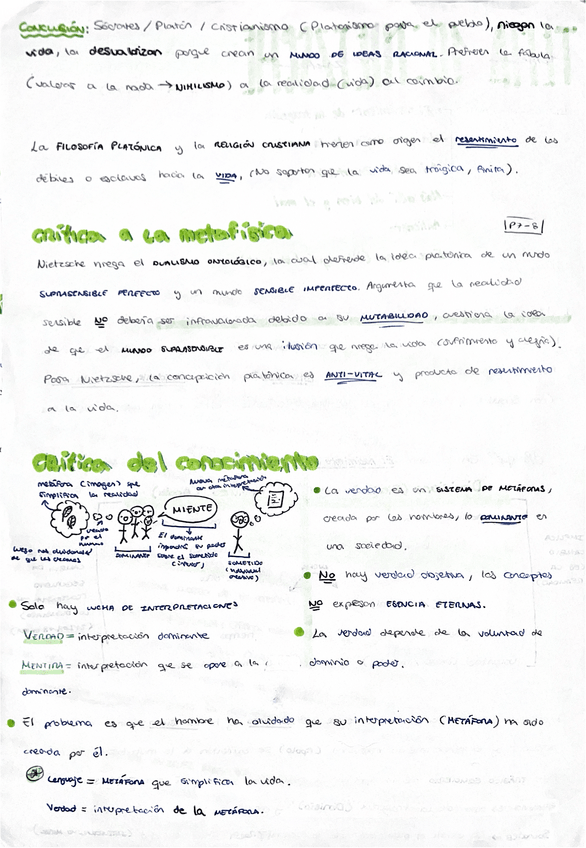 Conclusión: Sócrates / Platón / Cristianismo (Platonismo para el pueblo), niegan la
vida, la desvalorizan porque crean un MUNDO DE IDEAS RACIONAL. Prefieren la fábula
(valoran a la nada → NIHILISMO) a la realidad (vida) al cambio.
La FILOSOFÍA PLATÓNICA y la RELIGIÓN CRISTIANA tienen como origen el resentimiento de los
débiles o esclavos hacia la VIDA, (No soportan que la vida sea trágica, finita).
crítica a la metafísica
P7-8
Nietzsche niega el DUALISMO ONTOLÓGICO, la cual defiende la idea platónica de un mundo
SUPRASENSIBLE PERFECTO y un mundo SENSIBLE IMPERFECTO. Argumenta que la realidad
sensible NO debería ser infravalorada debido a su MUTABILIDAD, cuestiona la idea
de que el MUNDO SUPRASENSIBLE es una ilusión que niega la vida (sufrimiento y alegría).
Para Nietzsche, la concepción platónica es ANTI-VITAL y producto de resentimiento
a la vida.
Crítica del conocimiento
metáfora (imagen) que
simplifica la realidad
Nueva metáfora
MIENTE
luego nos olvidamos
de que las creamos
DOMINANTE
El dominante
impondrá su poder
sobre el sometido
SOMETIDO
La verdad es un SISTEMA DE METÁFORAS,
creada por los hombres, lo DOMINANTE en
una sociedad.
NO hay verdad objetiva, los conceptos
NO expresan ESENCIA ETERNAS.
La verdad depende de la voluntad de
dominio o poder.
Solo hay LUCHA DE INTERPRETACIONES
VERDAD = interpretación dominante
MENTIRA = interpretación que se opone a la
dominante.
El problema es que el hombre ha olvidado que su interpretación (METÁFORA) ha sido
creada por él.
Lenguaje = METÁFORA que simplifica la vida.
Verdad = interpretación de la METÁFORA.